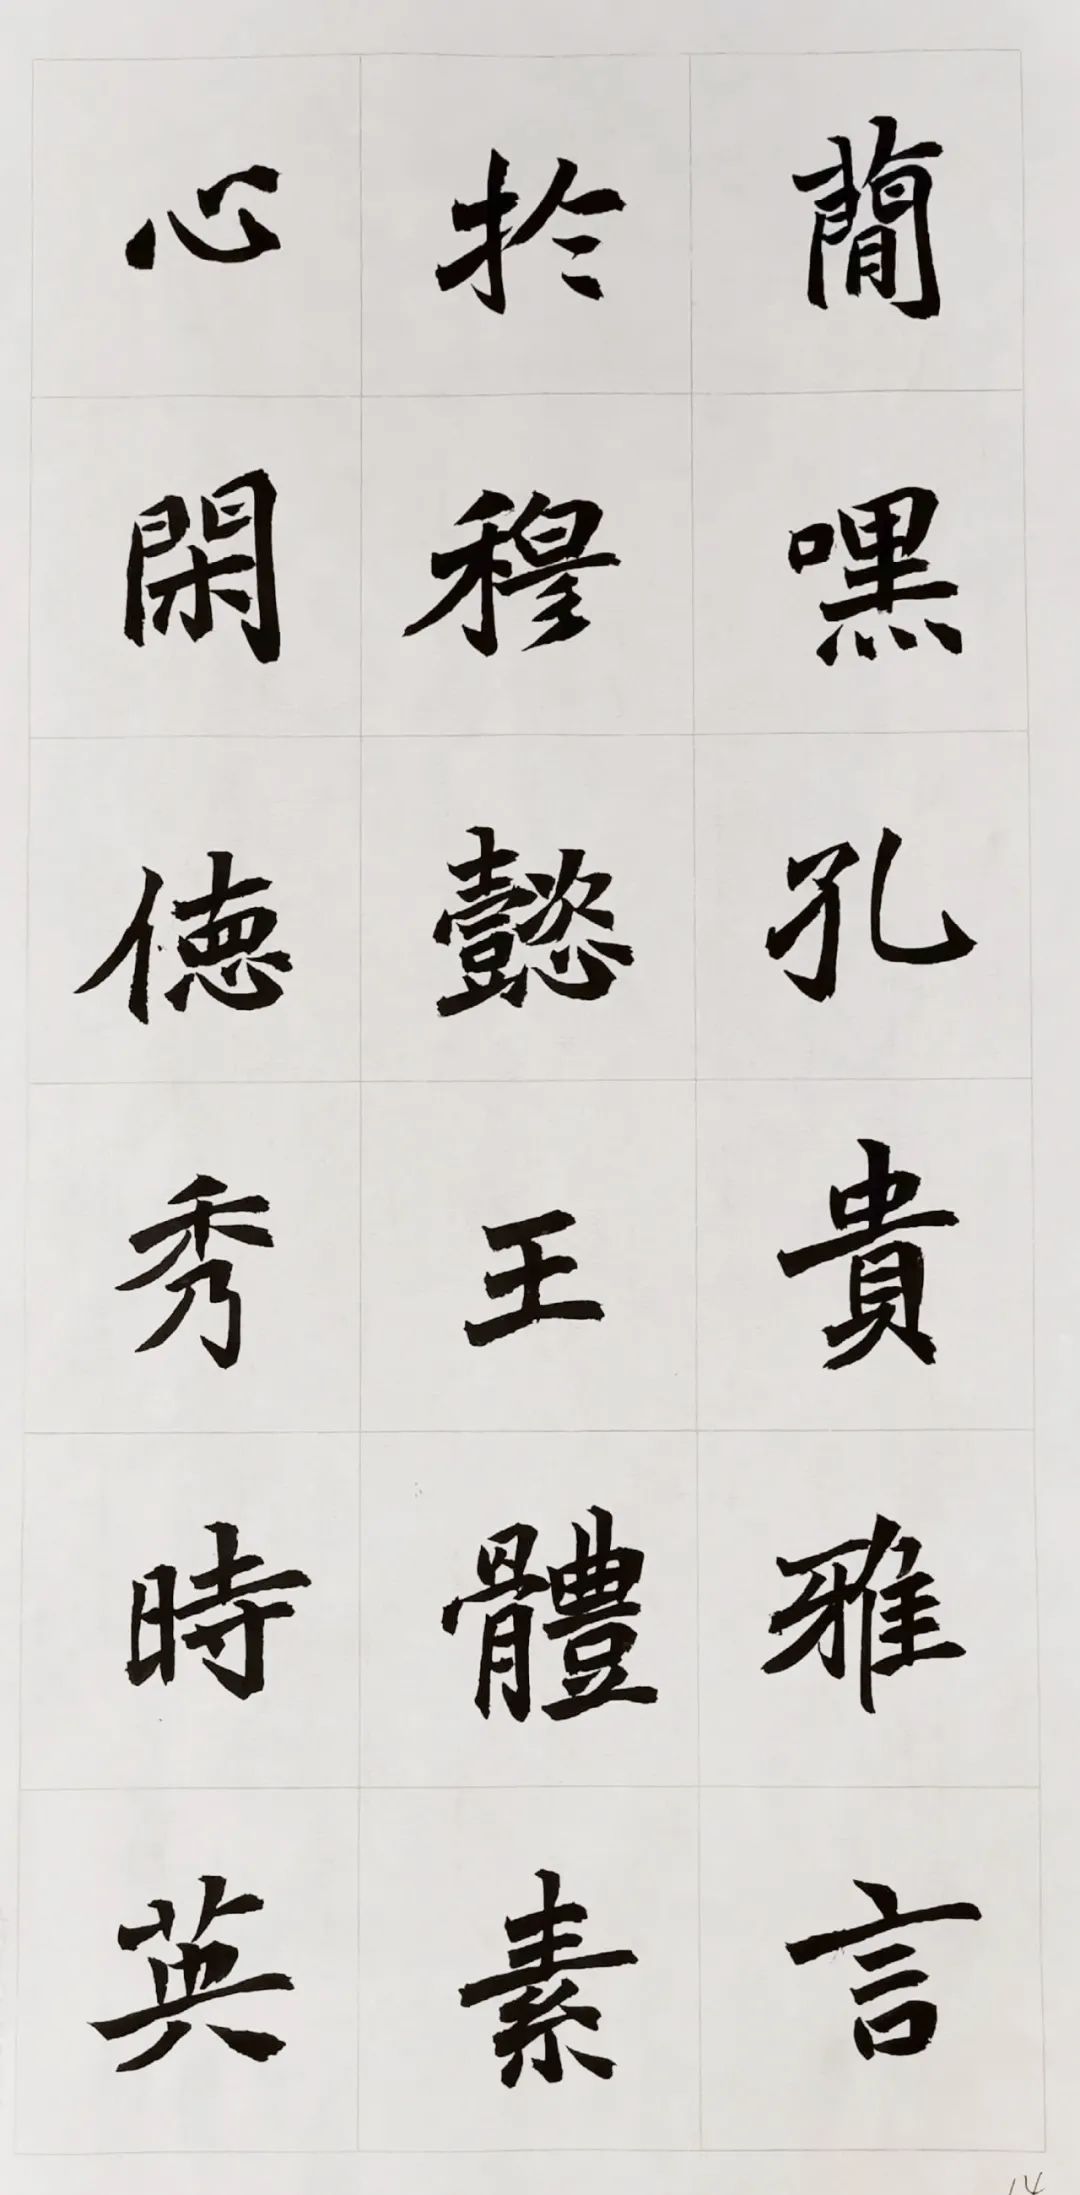 蕳嘿孔貴雅言
扵穆懿王體素
心閑徳秀時英
14